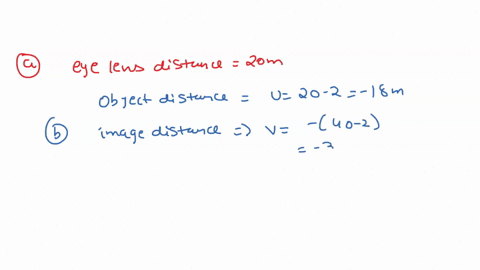 (a) eye lens distance = 20m
Object distance = U = 20-2 = -18m
(b) image distance => V = -(40-2)
= -3